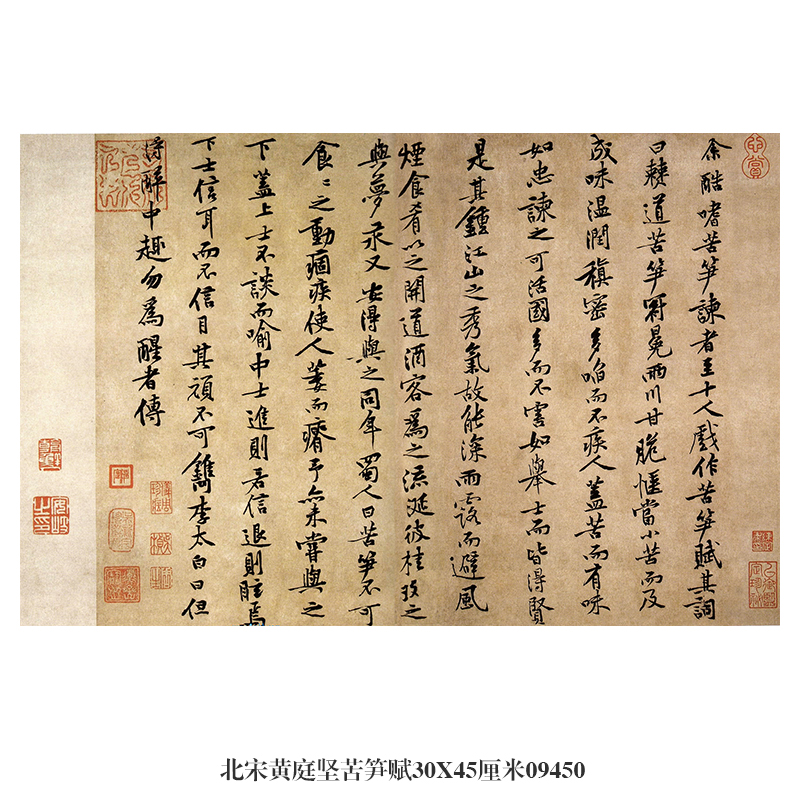 余酷嗜苦笋諫者至十人戲作苦笋賦其詞
曰僰道苦笋冠冕兩川甘脆愜當小苦而及
成味温潤稹密多啗而不疾人蓋苦而有味
如忠諫之可活國多而不害如舉士而皆得賢
是其鍾江山之秀氣故能深雨露而避風
煙食肴以之開道酒客爲之流涎彼桂玫之
與夢永又安得與之同年蜀人曰苦笋不可
食食之動痼疾使人萎而瘠予亦未嘗與之
下蓋上士不談而喻中士進則若信退則眩焉
下士信耳而不信目其頑不可鐫李太白曰但
得醉中趣勿爲醒者傳
北宋黄庭坚苦笋赋30X45厘米09450